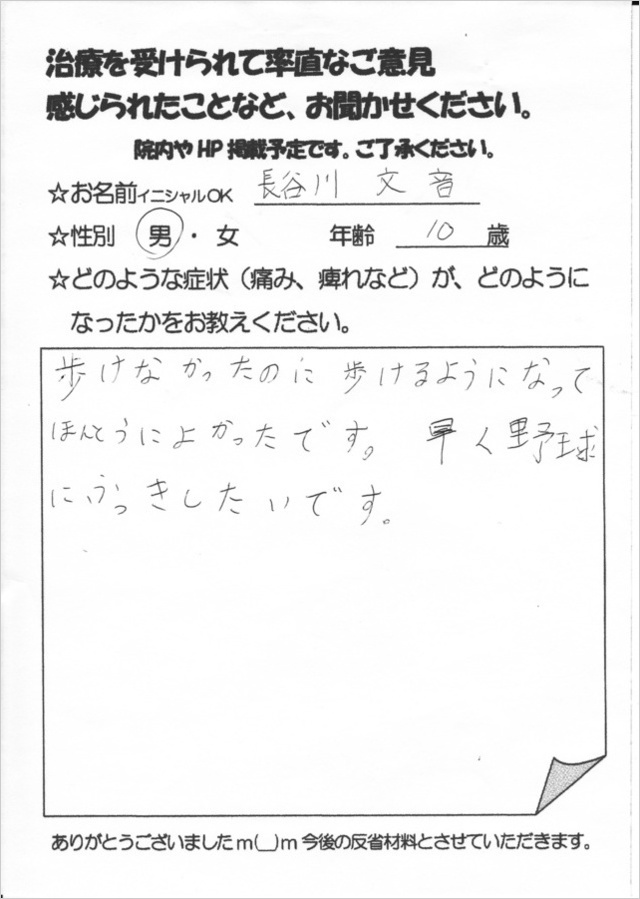 治療を受けられて率直なご意見
感じられたことなど、お聞かせください。
院内やHP掲載予定です。ご了承ください。
☆お名前イニシャルOK 長谷川 文音
☆性別 男・女 年齢 10 歳
☆どのような症状（痛み、痺れなど）が、どのように
なったかをお教えください。
歩けなかったのに歩けるようになって
ほんとうによかったです。早く野球
にふっきしたいです。
ありがとうございましたm(__)m今後の反省材料とさせていただきます。